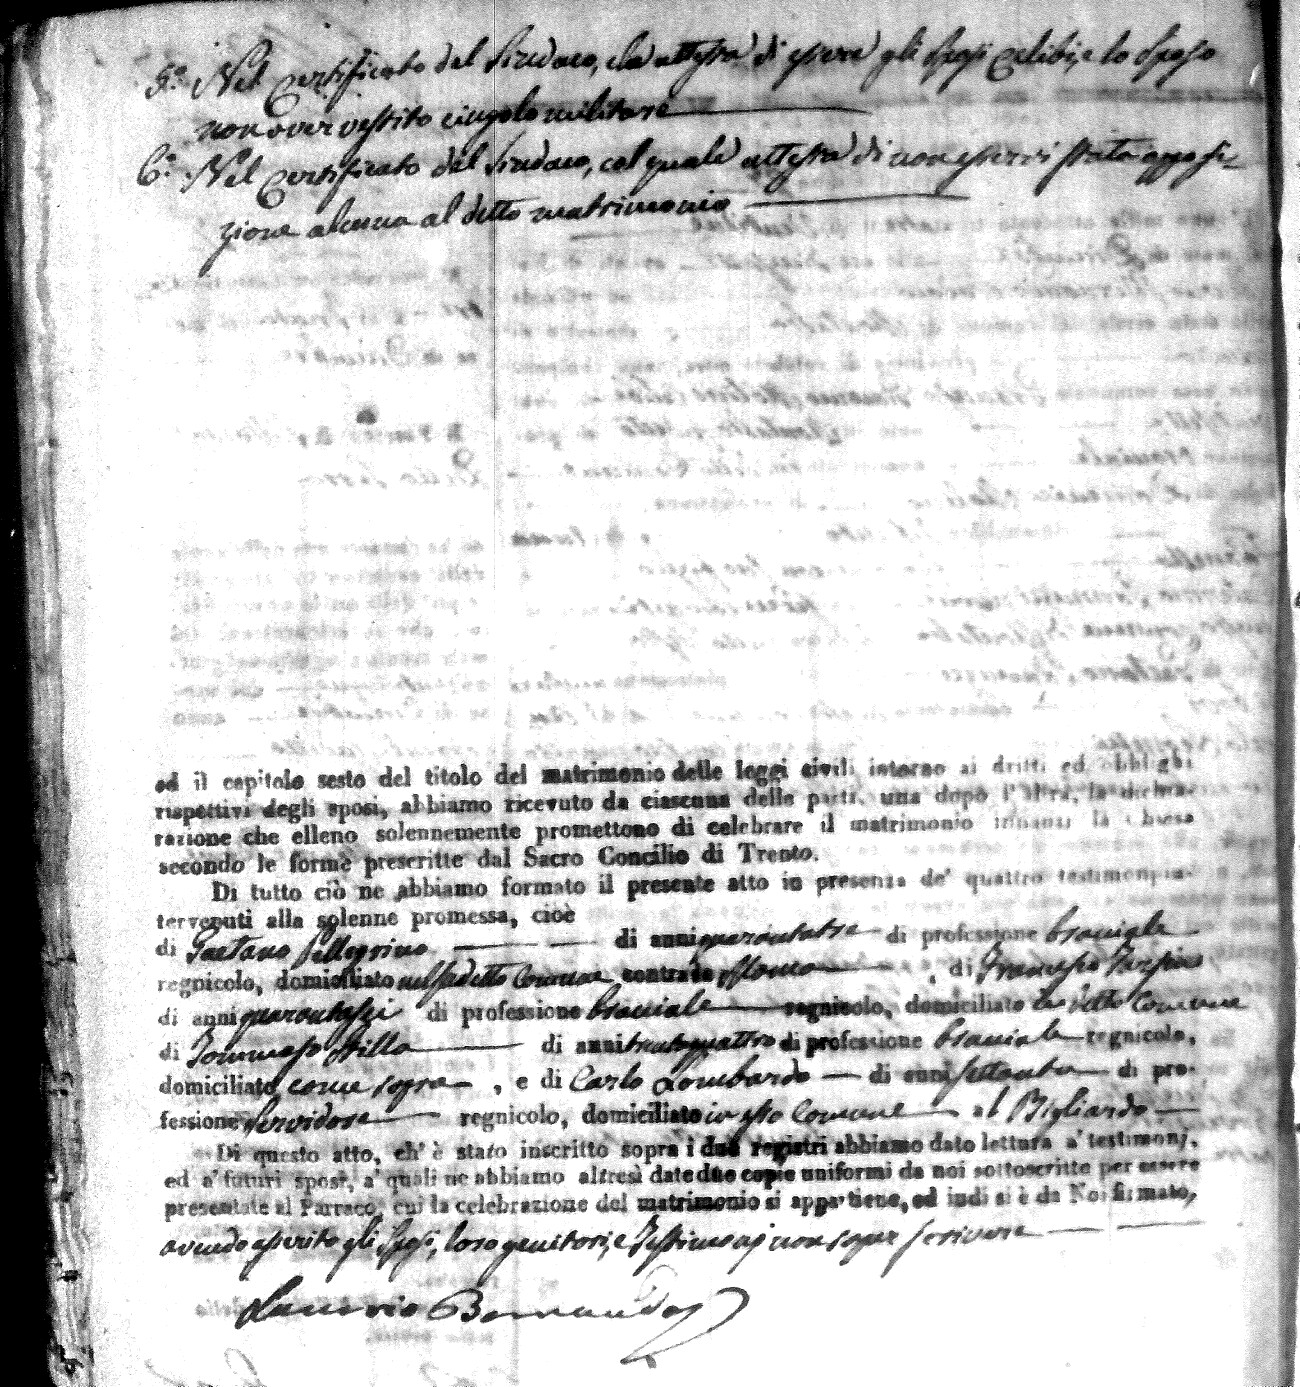 5.° Nel Certificato del Sindaco, che attesta di essere gli Sposi celibi, e lo Sposo
non aver vestito cingolo militare
6.° Nel Certificato del Sindaco, col quale attesta di non esservi stata opposi-
zione alcuna al detto matrimonio
ed il capitolo sesto del titolo del matrimonio delle leggi civili intorno ai dritti ed obblighi
rispettivi degli sposi, abbiamo ricevuto da ciascuna delle parti, una dopo l'altra, la dichia-
razione che elleno solennemente promettono di celebrare il matrimonio innanzi la Chiesa
secondo le forme prescritte dal Sacro Concilio di Trento.
Di tutto ciò ne abbiamo formato il presente atto in presenza de' quattro testimonj in-
tervenuti alla solenne promessa, cioè
di Gaetano Pellegrino di anni quarantatre di professione bracciale
regnicolo, domiciliato nel sudetto Comune contrada , di Francesco
di anni quarantasei di professione bracciale regnicolo, domiciliato in detto Comune
di Tommaso Stilla di anni trentaquattro di professione bracciale regnicolo,
domiciliato come sopra , e di Carlo Lombardo di anni settanta di pro-
fessione Servidore regnicolo, domiciliato in esso Comune al Bigliardo
Di questo atto, ch' è stato inscritto sopra i due registri abbiamo dato lettura a' testimonj,
ed a' futuri sposi, a' quali ne abbiamo altresì date due copie uniformi da noi sottoscritte per essere
presentate al Parroco, cui la celebrazione del matrimonio si appartiene, ed indi si è da Noi firmato,
avendo asserito gli Sposi, loro genitori, e Testimonj non saper scrivere